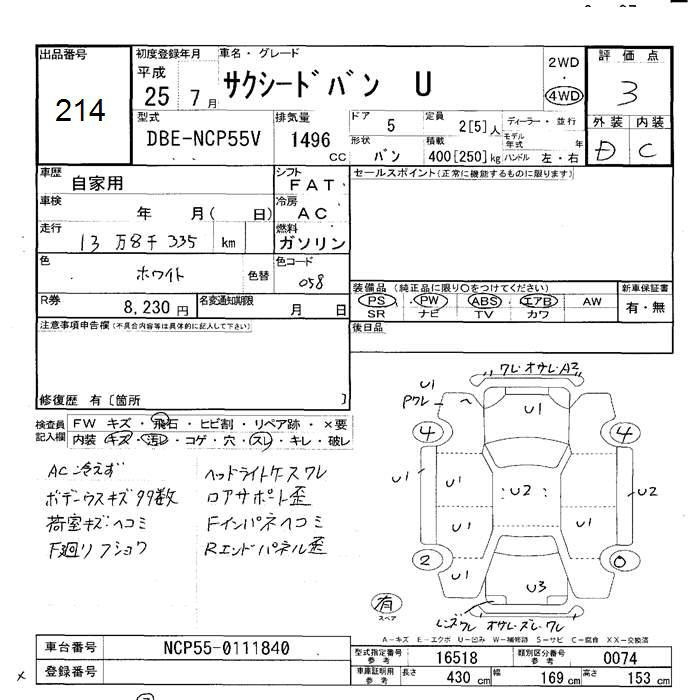 出品番号
214
初度登録年月
平成
25 7 月
車名・グレード
サクシードバン U
2WD
・
4WD
評価点
3
外装 内装
D C
型式
DBE-NCP55V
排気量
1496
CC
ドア
5
定員
2[5] 人
ディーラー・並行
モデル年式 年
形状
バン
積載
400[250] kg
ハンドル 左・右
車歴
自家用
シフト
FAT
車検
年 月( 日)
冷房
AC
走行
13万8千335 km
燃料
ガソリン
色
ホワイト
色替
色コード
058
R券
8,230 円
名変通知期限
月 日
セールスポイント(正常に機能するものに限ります)
装備品 (純正品に限り○をつけてください)
PS PW ABS エアB AW
SR ナビ TV カワ
新車保証書
有・無
後日品
注意事項申告欄(不具合内容等は具体的に記入して下さい)
修復歴 有[箇所 ]
検査員記入欄
FW キズ・飛石・ヒビ割・リペア跡・×要
内装 キズ・汚レ・コゲ・穴・スレ・キレ・破レ
AC冷えず
ボデーウスキズ凹多数
荷室キズヘコミ
下廻リフショク
ヘッドライトケースワレ
ロアサポート歪
Fインパネヘコミ
Rエンドパネル歪
ワレ・オサレ・A2
U1
Pワレ
U1
4 4
U1 U1 U2 U2
U1 U1
2 0
U1 U3
有
スペア
レンズワレ オサレ・ズレ・ワレ
A-キズ E-エクボ U-凹み W-補修跡 S-サビ C-腐食 XX-交換済
車台番号
NCP55-0111840
登録番号
型式指定番号
参考
16518
類別区分番号
参考
0074
車庫証明用
参考
長さ 430 cm
幅 169 cm
高さ 153 cm